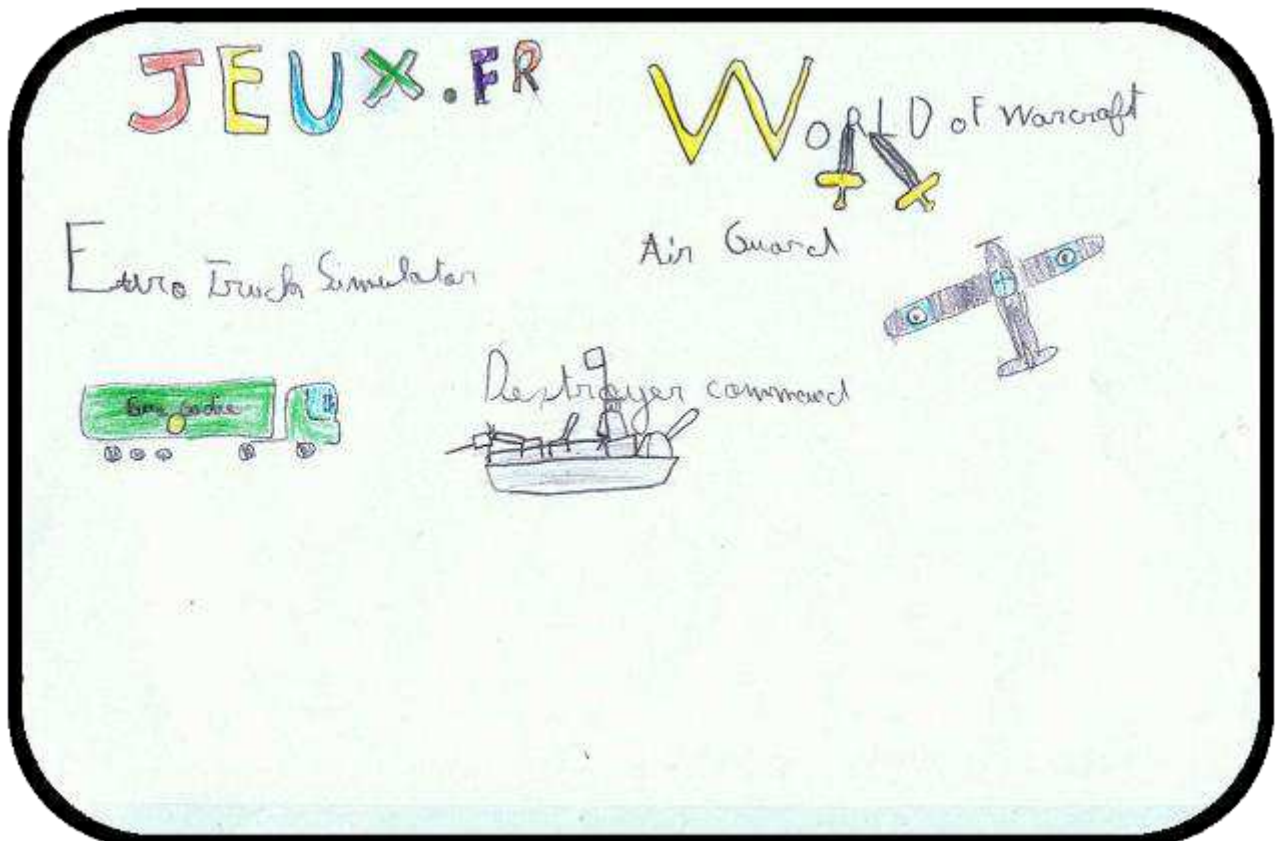 JEUX.FR
WORLD of Warcraft
Euro Truck Simulator
Air Guard
Destroyer command